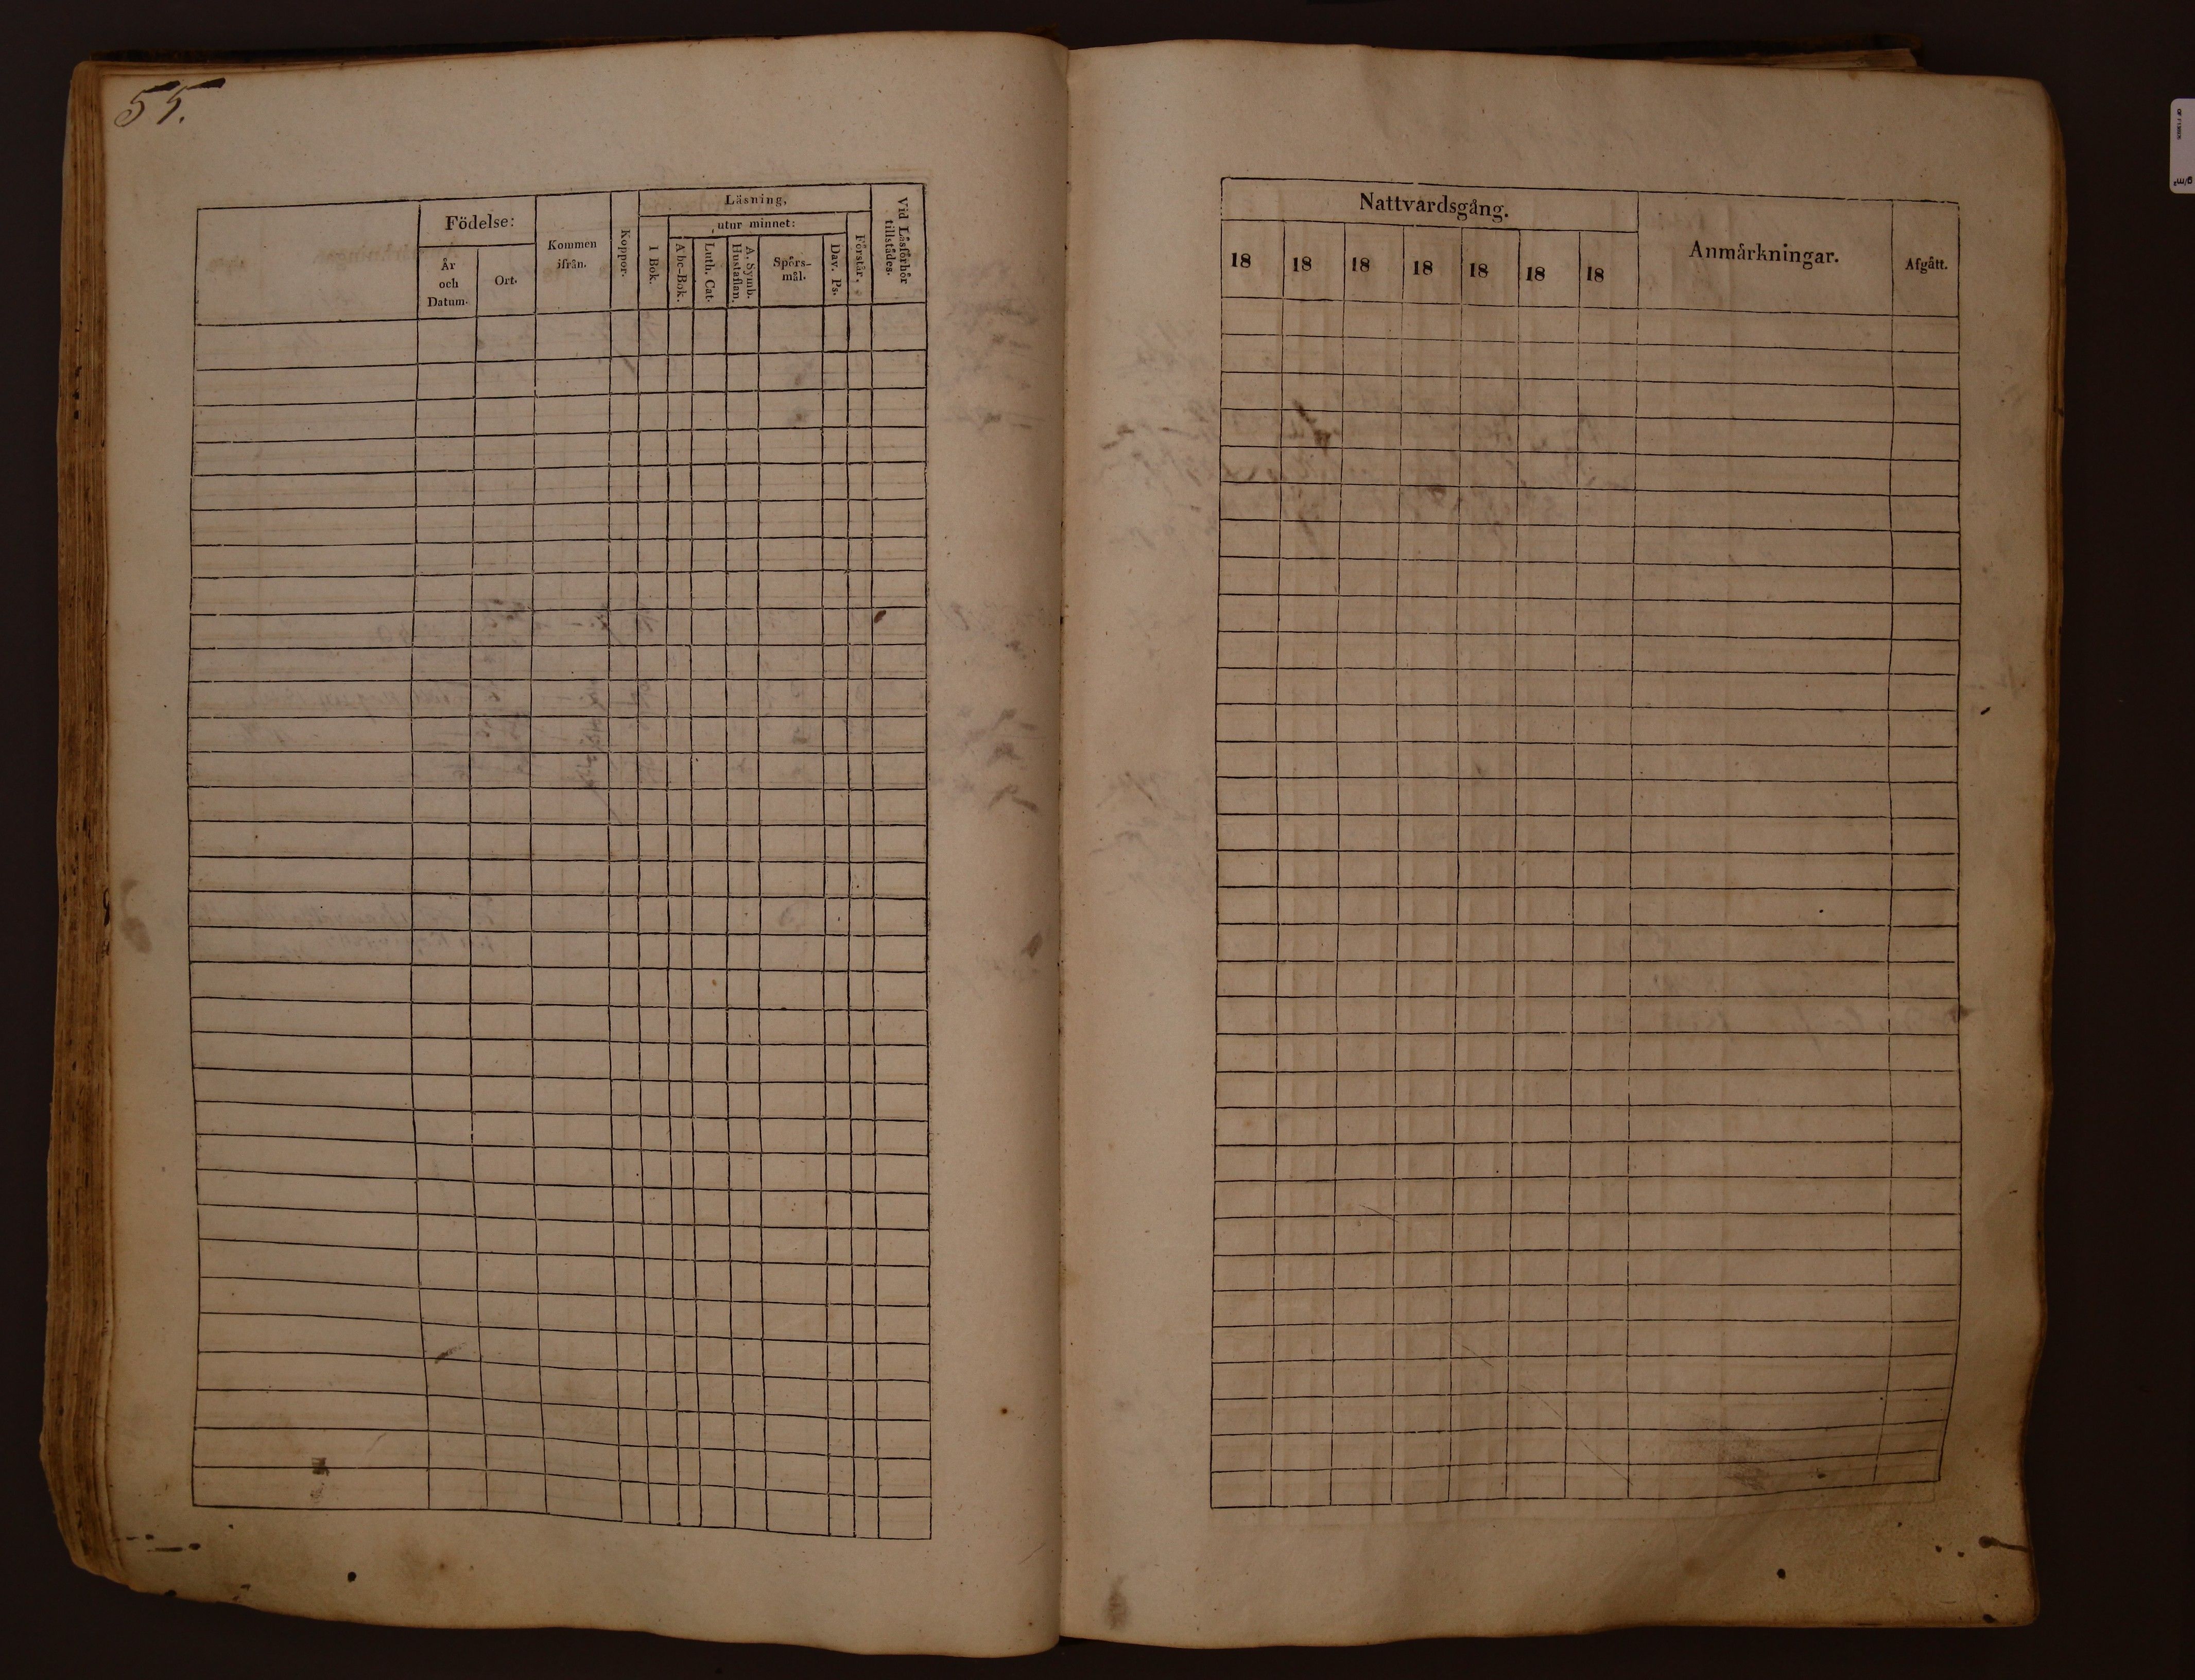 55.
Födelse:
År
och
Datum.
Ort.
Kommen
ifrån.
Koppor.
Läsning,
I Bok.
utur minnet:
Abc-Bok.
Luth. Cat.
A. Symb.
Hustaflan.
Spörs-
mål.
Dav. Ps.
Förstår.
Vid Läsförhör
tillstädes.
Nattvardsgång.
18 18 18 18 18 18 18
Anmärkningar.
Afgått.